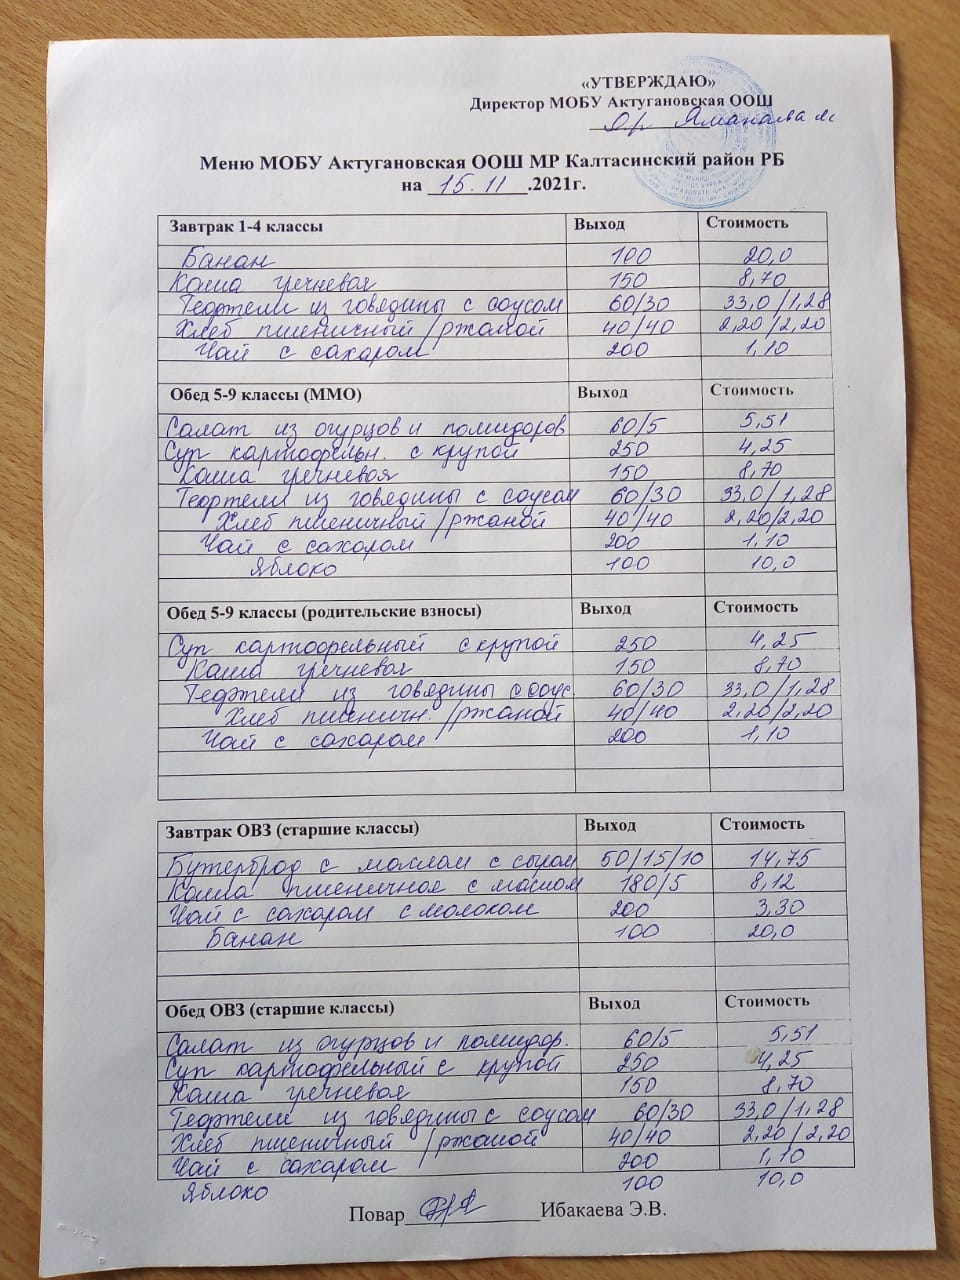 «УТВЕРЖДАЮ»
Директор МОБУ Актугановская ООШ
Яманаева М
Меню МОБУ Актугановская ООШ МР Калтасинский район РБ
на 15.11.2021г.
Завтрак 1-4 классы Выход Стоимость
Банан 100 20,0
Каша гречневая 150 8,70
Тефтели из говядины с соусом 60/30 33,0/1,28
Хлеб пшеничный/ржаной 40/40 2,20/2,20
Чай с сахаром 200 1,10
Обед 5-9 классы (ММО) Выход Стоимость
Салат из огурцов и помидоров 60/5 5,51
Суп картофельн. с крупой 250 4,25
Каша гречневая 150 8,70
Тефтели из говядины с соусом 60/30 33,0/1,28
Хлеб пшеничный/ржаной 40/40 2,20/2,20
Чай с сахаром 200 1,10
Яблоко 100 10,0
Обед 5-9 классы (родительские взносы) Выход Стоимость
Суп картофельный с крупой 250 4,25
Каша гречневая 150 8,70
Тефтели из говядины с соус 60/30 33,0/1,28
Хлеб пшеничн./ржаной 40/40 2,20/2,20
Чай с сахаром 200 1,10
Завтрак ОВЗ (старшие классы) Выход Стоимость
Бутерброд с маслом с сыром 50/15/10 14,75
Каша пшеничная с маслом 180/5 8,12
Чай с сахаром с молоком 200 3,30
Банан 100 20,0
Обед ОВЗ (старшие классы) Выход Стоимость
Салат из огурцов и помидор. 60/5 5,51
Суп картофельный с крупой 250 4,25
Каша гречневая 150 8,70
Тефтели из говядины с соусом 60/30 33,0/1,28
Хлеб пшеничный/ржаной 40/40 2,20/2,20
Чай с сахаром 200 1,10
Яблоко 100 10,0
Повар Ибакаева Э.В.